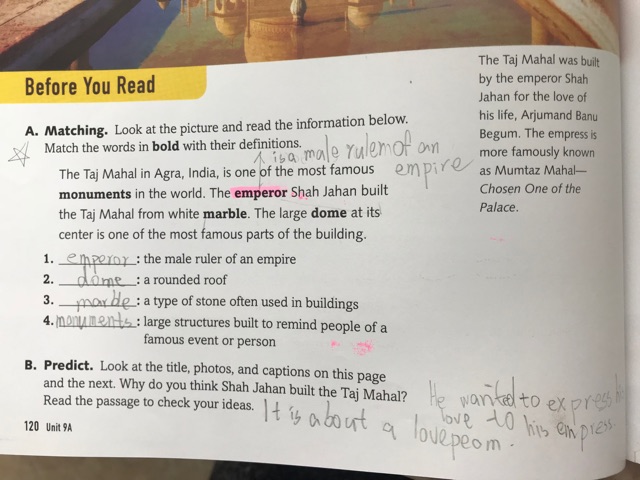 Before You Read
A. Matching. Look at the picture and read the information below.
Match the words in bold with their definitions.
↑ is a male rulem of an
empire
The Taj Mahal in Agra, India, is one of the most famous
monuments in the world. The emperor Shah Jahan built
the Taj Mahal from white marble. The large dome at its
center is one of the most famous parts of the building.
1. emperor : the male ruler of an empire
2. dome : a rounded roof
3. marble : a type of stone often used in buildings
4. monuments : large structures built to remind people of a
famous event or person
B. Predict. Look at the title, photos, and captions on this page
and the next. Why do you think Shah Jahan built the Taj Mahal?
Read the passage to check your ideas.
It is about a lovepeom.
He wanted to express his
love to his empress.
120 Unit 9A
The Taj Mahal was built
by the emperor Shah
Jahan for the love of
his life, Arjumand Banu
Begum. The empress is
more famously known
as Mumtaz Mahal—
Chosen One of the
Palace.